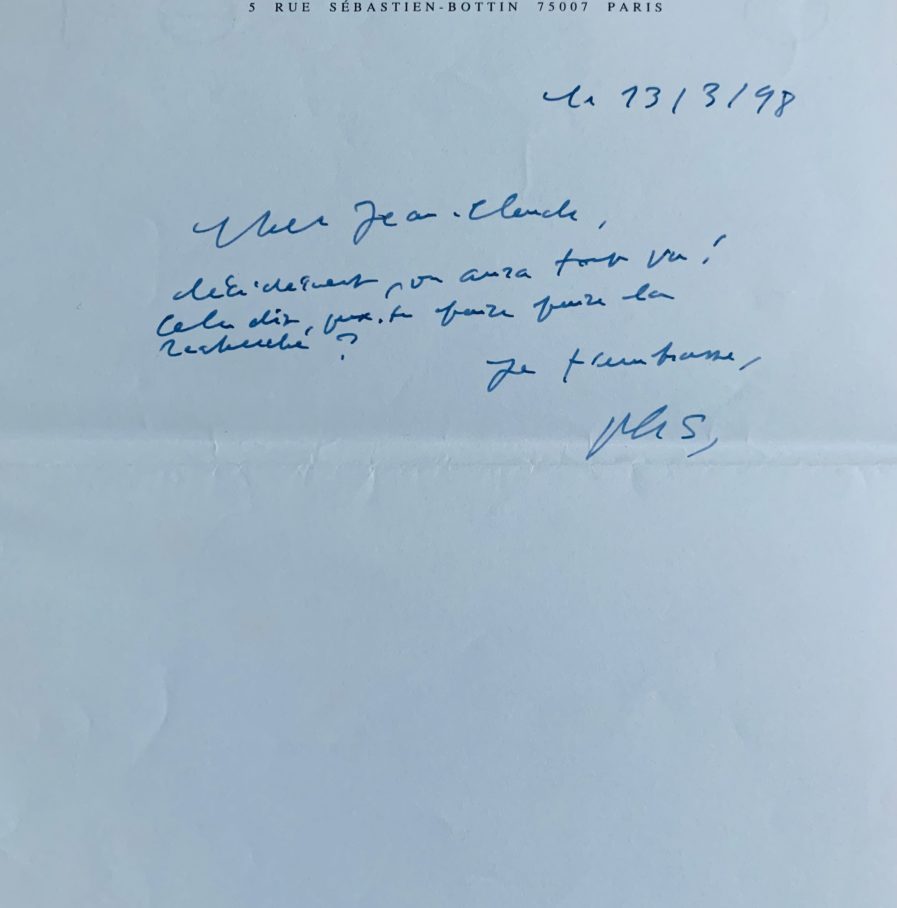 5 RUE SÉBASTIEN-BOTTIN 75007 PARIS
le 13/3/98
Cher Jean-Claude,
décidément, on aura tout vu !
Cela dit, peux-tu faire faire la
recherche ?
Je t'embrasse,
PhS,